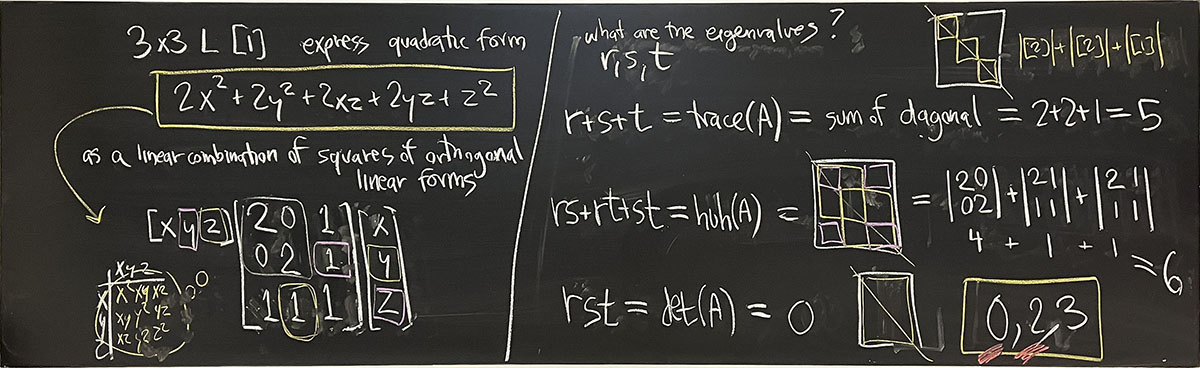 3x3 L [1] express quadratic form
2x² + 2y² + 2xz + 2yz + z²
as a linear combination of squares of orthogonal
linear forms
[x y z] [2 0 1] [x]
[0 2 1] [y]
[1 1 1] [z]
x y z
x x² xy xz
y xy y² yz
z xz yz z²
what are the eigenvalves?
r, s, t
|[2]| + |[2]| + |[1]|
r+s+t = trace(A) = sum of dagonal = 2+2+1 = 5
rs+rt+st = huh(A) = = |2 0| + |2 1| + |2 1|
|0 2| |1 1| |1 1|
4 + 1 + 1 = 6
rst = det(A) = 0
0, 2, 3